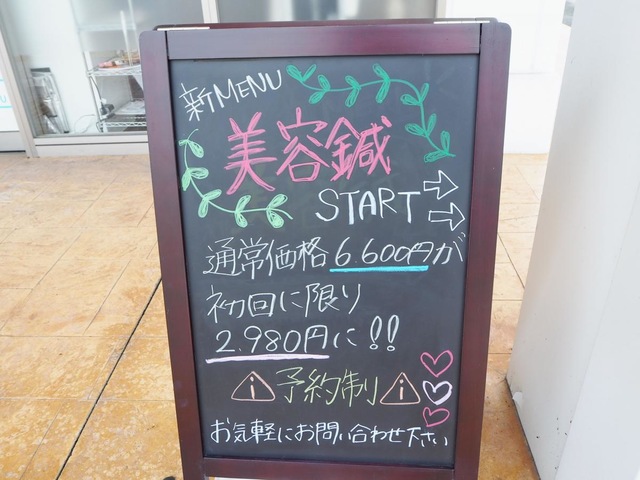 新MENU
美容鍼
START
通常価格6.600円が
初回に限り
2.980円に!!
予約制
お気軽にお問い合わせ下さい